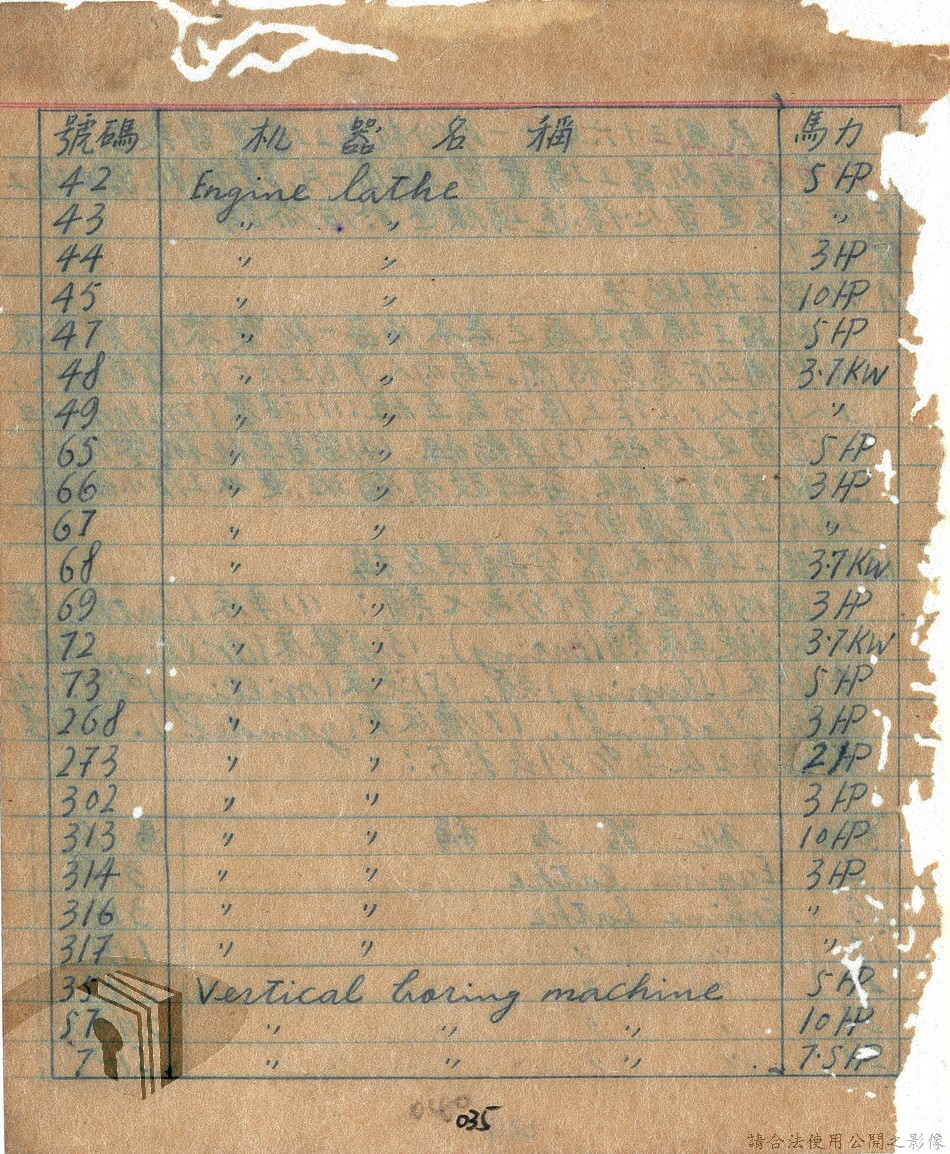 號碼 机器名稱 馬力
42 Engine lathe 5 HP
43 〃 〃 〃
44 〃 〃 3 HP
45 〃 〃 10 HP
47 〃 〃 5 HP
48 〃 〃 3.7 KW
49 〃 〃 〃
65 〃 〃 5 HP
66 〃 〃 3 HP
67 〃 〃 〃
68 〃 〃 3.7 KW
69 〃 〃 3 HP
72 〃 〃 3.7 KW
73 〃 〃 5 HP
268 〃 〃 3 HP
273 〃 〃 2 HP
302 〃 〃 3 HP
313 〃 〃 10 HP
314 〃 〃 3 HP
316 〃 〃 〃
317 〃 〃 〃
35 Vertical boring machine 5 HP
57 〃 〃 〃 10 HP
7 〃 〃 〃 7.5 HP
035
請合法使用公開之影像